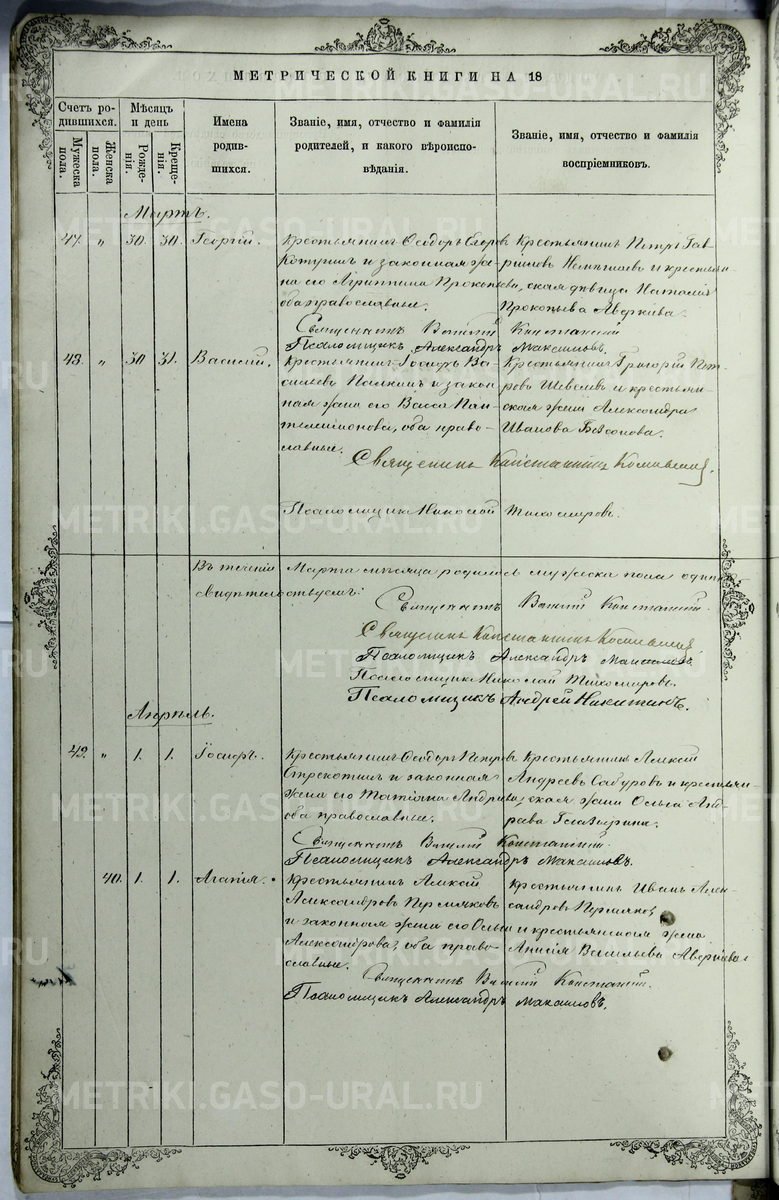 МЕТРИЧЕСКОЙ КНИГИ НА 18
Счетъ родившихся.
Мужеска пола.
Женска пола.
Мѣсяцъ и день
Рожденія.
Крещенія.
Имена родившихся.
Званіе, имя, отчество и фамилія родителей, и какого вѣроисповѣданія.
Званіе, имя, отчество и фамилія воспріемниковъ.
Мартъ.
47. " 30. 30. Георгій.
Крестьянинъ Ѳеодоръ Егоровъ
и законная жена его Агриппина Прокопьева,
оба православные.
Крестьянинъ Петръ Гавриловъ
и крестьянская дѣвица Наталія
Прокопьева Аверкіева.
Священникъ Василій Констанскій
Псаломщикъ Александръ Максимовъ.
48. " 30 31. Василій.
Крестьянинъ Іосифъ Васильевъ
и законная жена его Васса Пантелеимонова,
оба православные.
Крестьянинъ Григорій Петровъ
Шевелевъ и крестьянская жена Александра
Иванова
Священникъ Константинъ
Псаломщикъ Николай Тихомировъ.
Въ теченіи Марта мѣсяца родилось мужеска пола
свидѣтельствуемъ:
Священникъ Василій Констанскій.
Священникъ Константинъ
Псаломщикъ Александръ Максимовъ
Псаломщикъ Николай Тихомировъ.
Псаломщикъ Андрей Никитинъ.
Апрѣль.
49. " 1. 1. Іосифъ.
Крестьянинъ Ѳеодоръ Петровъ
Стрекотинъ и законная
жена его Татіана Андреева,
оба православные.
Крестьянинъ Алексій
Андреевъ Сабуровъ и крестьянская
жена Ольга Андреева
Священникъ Василій Констанскій.
Псаломщикъ Александръ Максимовъ.
40. 1. 1. Агапія.
Крестьянинъ Алексій
Александровъ Пермяковъ
и законная жена его Ольга
Александрова, оба православные.
Крестьянинъ Иванъ Александровъ
Пермяковъ
и крестьянская жена
Анисія Васильева Аверкіева
Священникъ Василій Констанскій.
Псаломщикъ Александръ Максимовъ.
METRIKI.GASO-URAL.RU